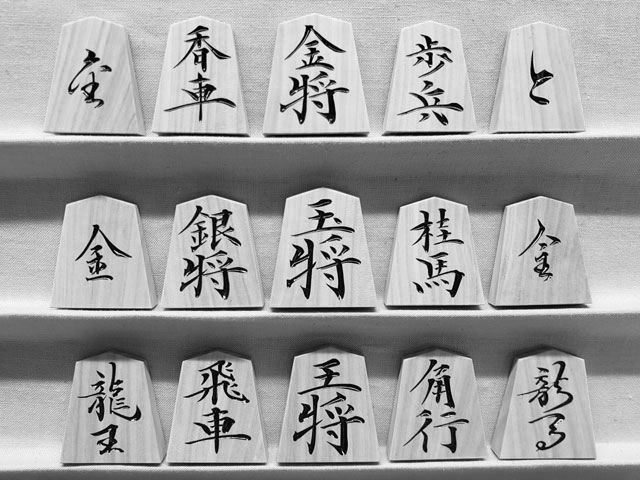 金
香車
金将
歩兵
と
金
銀将
玉将
桂馬
金
龍王
飛車
王将
角行
龍馬